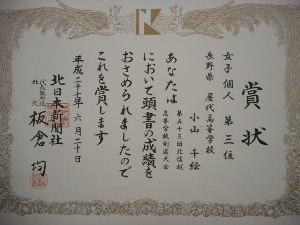 賞状
女子個人 第三位
長野県 屋代高等学校
小山千絵
第五十三回北信越
高等学校剣道大会
あなたは
において頭書の成績を
おさめられましたので
これを賞します
平成二十七年六月二十日
北日本新聞社
代表取締役
社長
板倉均